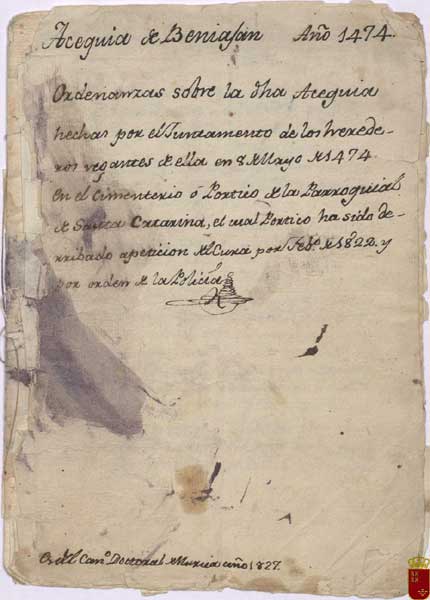 Acequia de Beniajan Año 1474.
Ordenanzas sobre la dha Acequia
hechas por el Juntamento de los herede-
ros regantes de ella en 8 de Mayo de 1474
en el Cimenterio ó Portico de la Parroquial
de Santa Catarina, el cual Portico ha sido de-
rribado a peticion del Cura por Febº. de 1822. y
por orden de la Policía
Es del Canº. Doctoral de Murcia año 1827.